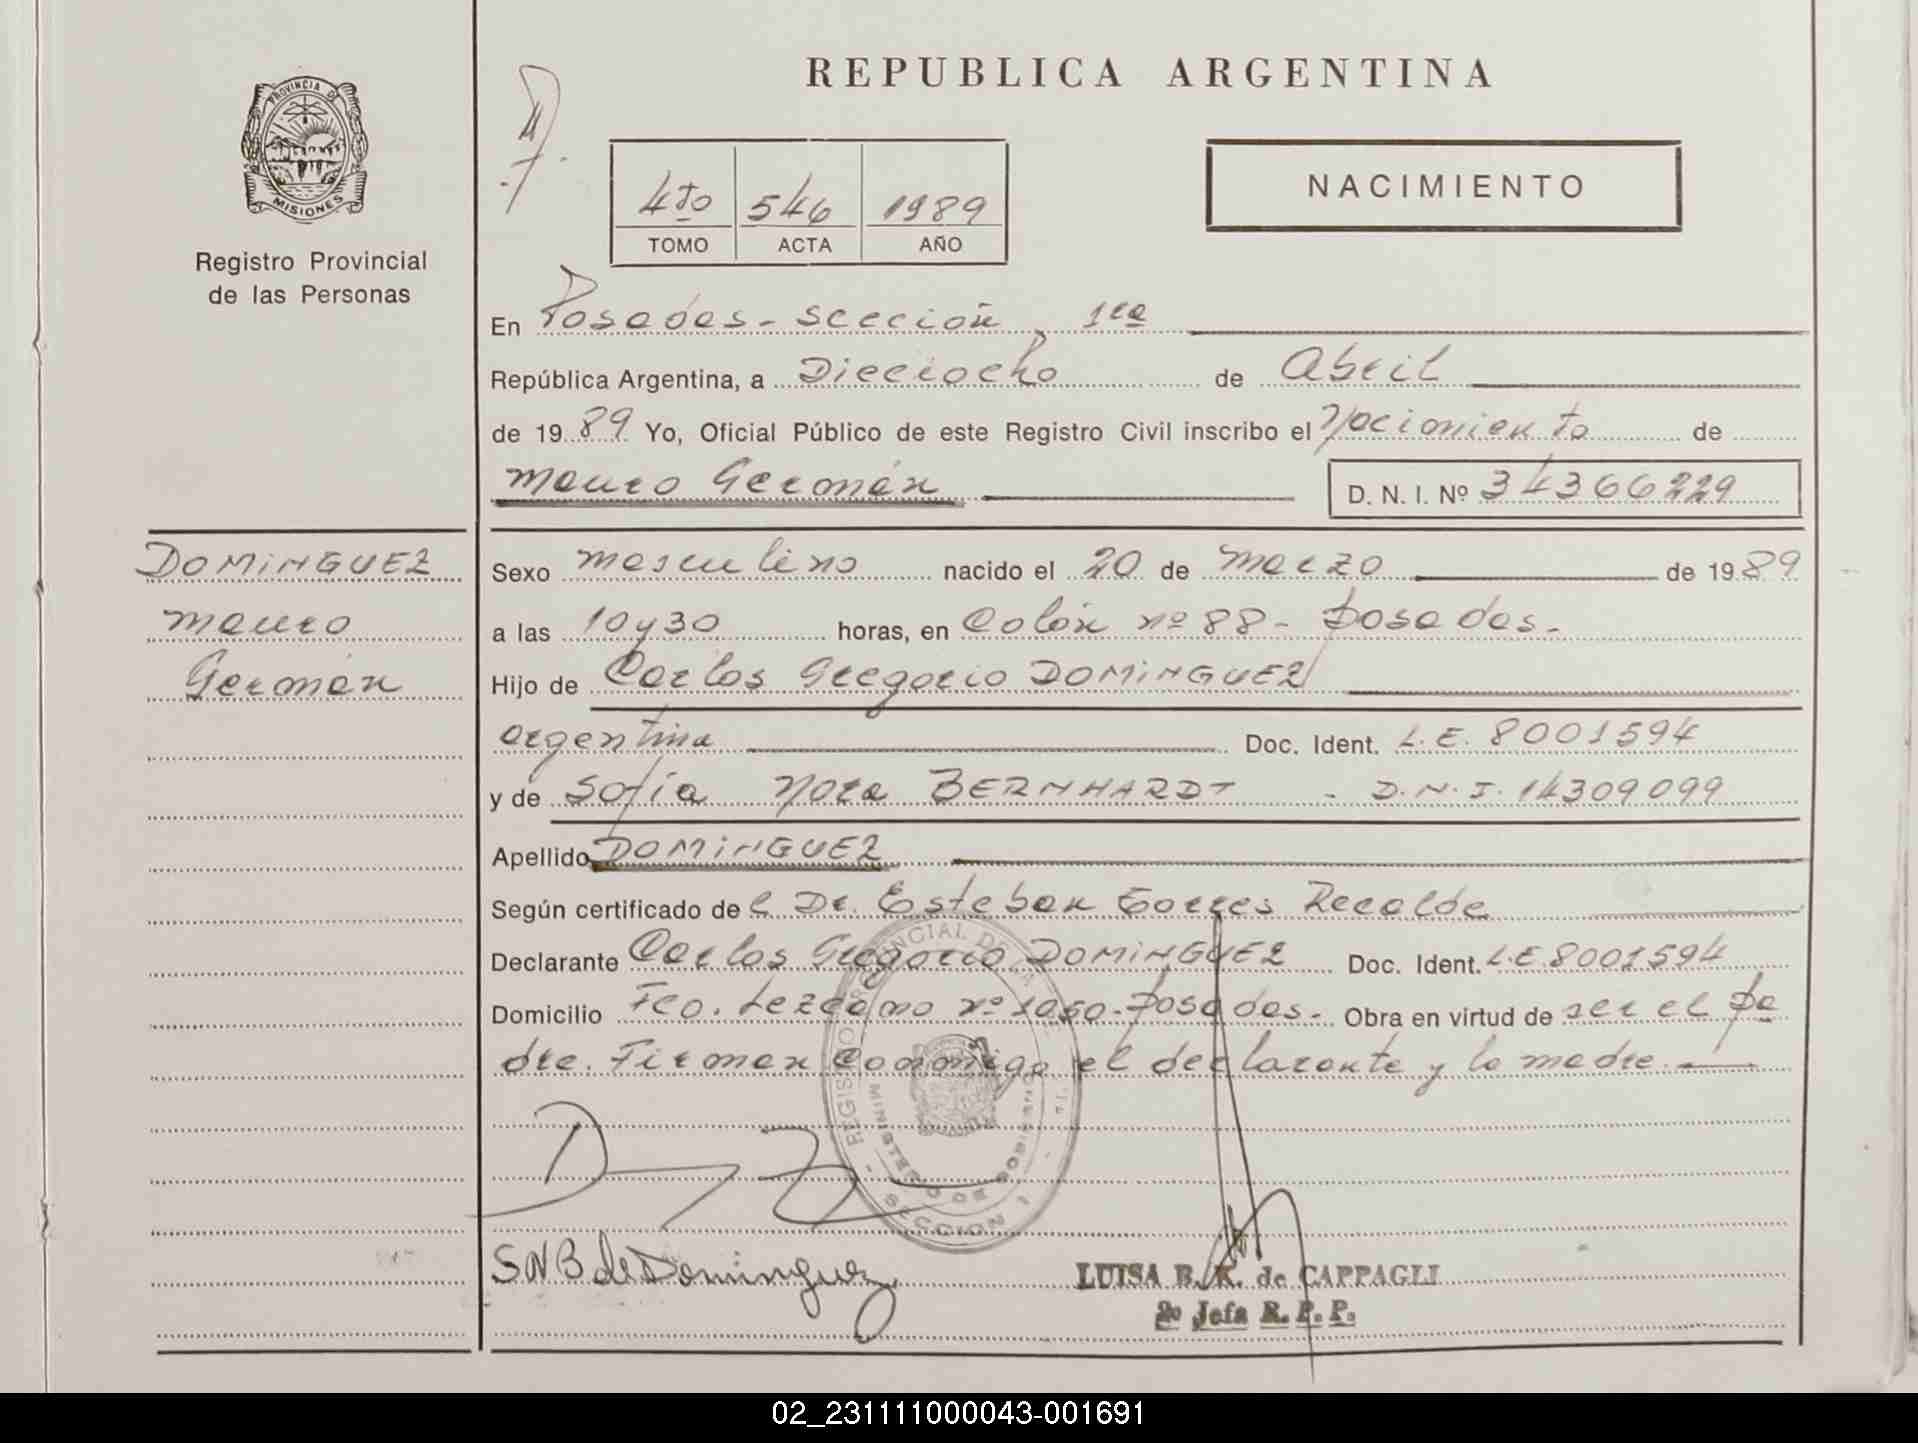 PROVINCIA DE
MISIONES
Registro Provincial
de las Personas
REPUBLICA ARGENTINA
4to 546 1989
TOMO ACTA AÑO
NACIMIENTO
En Posadas - sección 1ra
República Argentina, a Dieciocho de Abril
de 1989 Yo, Oficial Público de este Registro Civil inscribo el Nacimiento de
Mauro Germán D. N. I. Nº 34366229
DOMINGUEZ
Mauro
Germán
Sexo masculino nacido el 20 de Marzo de 1989
a las 10y30 horas, en Colón nº 88 - Posadas -
Hijo de Carlos Gregorio DOMINGUEZ
argentina Doc. Ident. L.E. 8001594
y de Sofía Nora BERNHARDT - D.N.I. 14309099
Apellido DOMINGUEZ
Según certificado del Dr. Esteban Torres Recalde
Declarante Carlos Gregorio DOMINGUEZ Doc. Ident. L.E. 8001594
Domicilio Fco. Lezcano nº 1050 - Posadas - Obra en virtud de ser el pa
dre. Firman conmigo el declarante y la madre.
REGISTRO PROVINCIAL DE LAS
MINISTERIO DE GOBIERNO
SECCION 1
SNB de Dominguez
LUISA B. K. de CAPPAGLI
2º Jefa R. P. P.
02_231111000043-001691